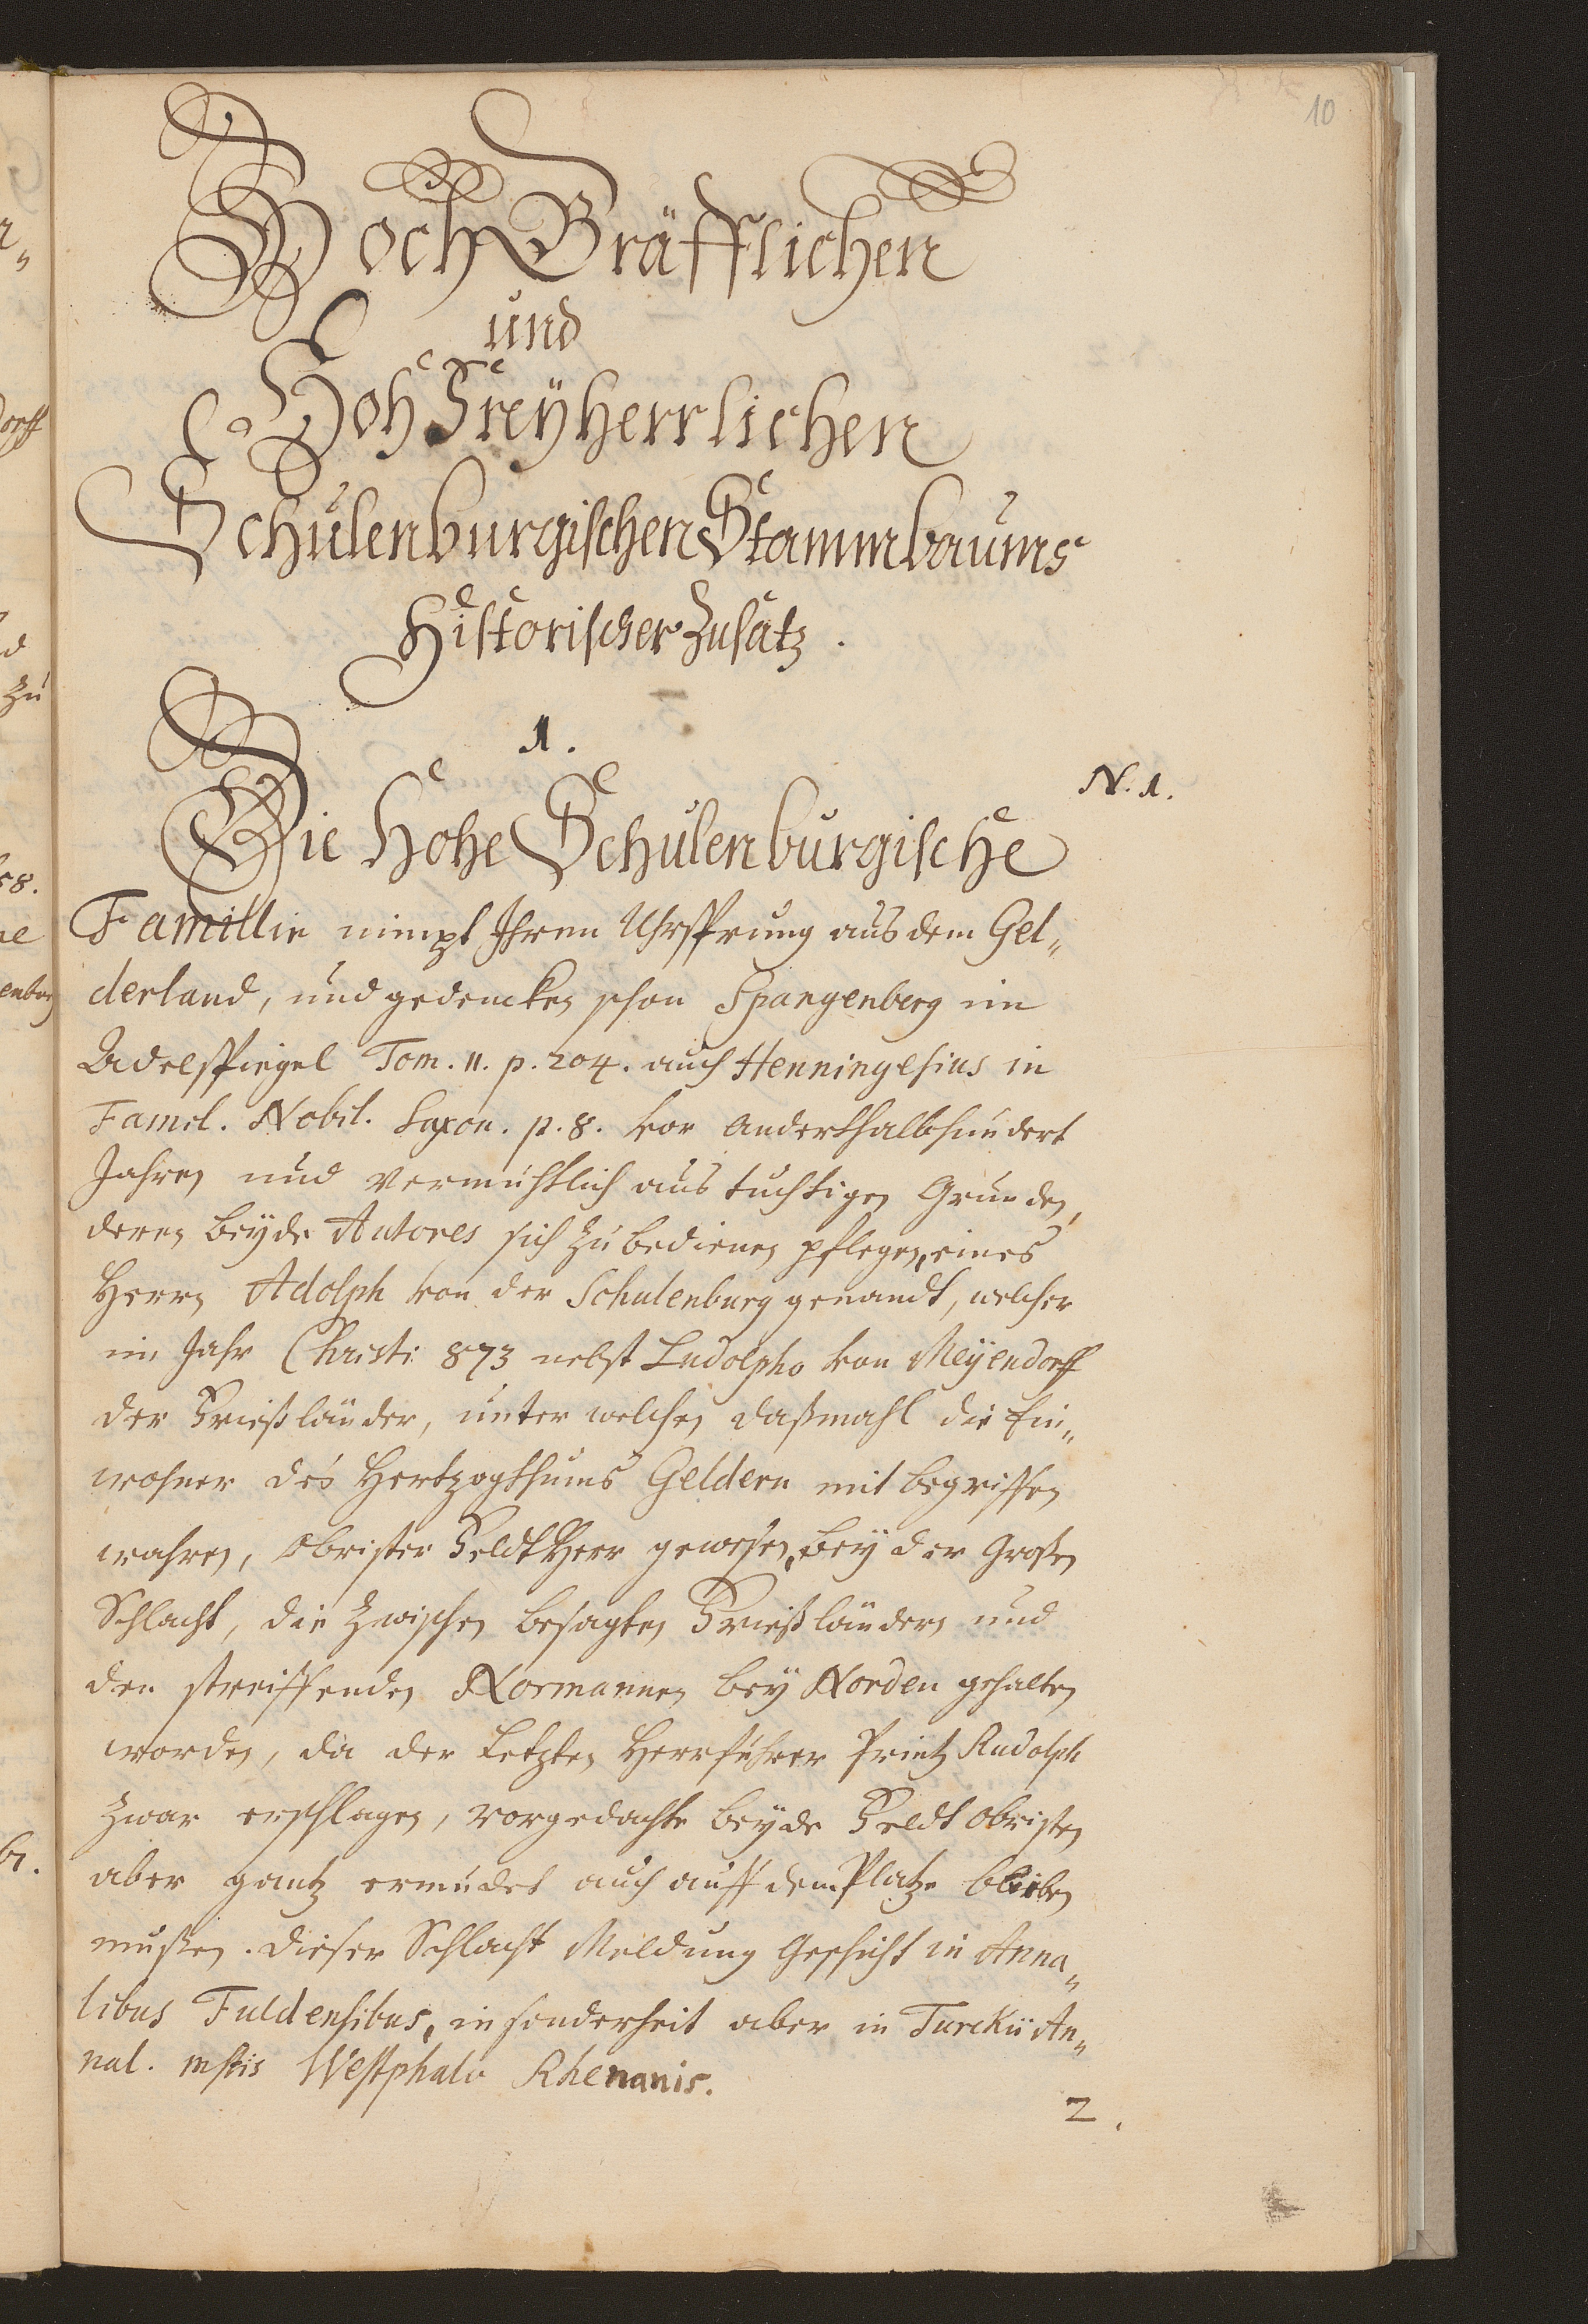 10
Hoch Gräfflichen
und
Hoh Freÿherrlichen
Schulenburgischen Stammbaums
Historischer Zusatz.
1.
N. 1.
Die Hohe Schulenburgische
Famillie nimpt Ihren Uhrsprung aus dem Gel„
derland, und gedencken schon Spangenberg im
Adelspiegel Tom. II. p. 204. auch Henningesius in
Famil. Nobil. Saxon. p. 8. vor anderthalbhundert
Jahren und vermuhtlich aus tuchtigen Grunden,
deren beÿde Autores sich zu bedienen pflegen, eines
Herrn Adolph von der Schulenburg genandt, welcher
im Jahr Christi 873 nebst Ludolpho von Meÿendorff
der Frießländer, unter welchen daßmahl die Ein„
wohner des Hertzogthums Geldern mit begriffen
wahren, Obrister Feldt Herr gewesen, beÿ der Großen
Schlacht, die zwischen besagten Frießländern und
den streiffenden Normannen beÿ Norden gehalten
worden, da der Letzten Heerführer Printz Rudolph
zwar erschlagen, vorgedachte beÿde Feldt Obristen
aber gantz ermüdet auch auff dem Platze bleiben
mußen. Dieser Schlacht Meldung geschicht in Anna„
libus Fuldensibus, in sonderheit aber in Turckii An„
nal. mstis Westphalo Rhenanis.
2.
orff
d
zu
58.